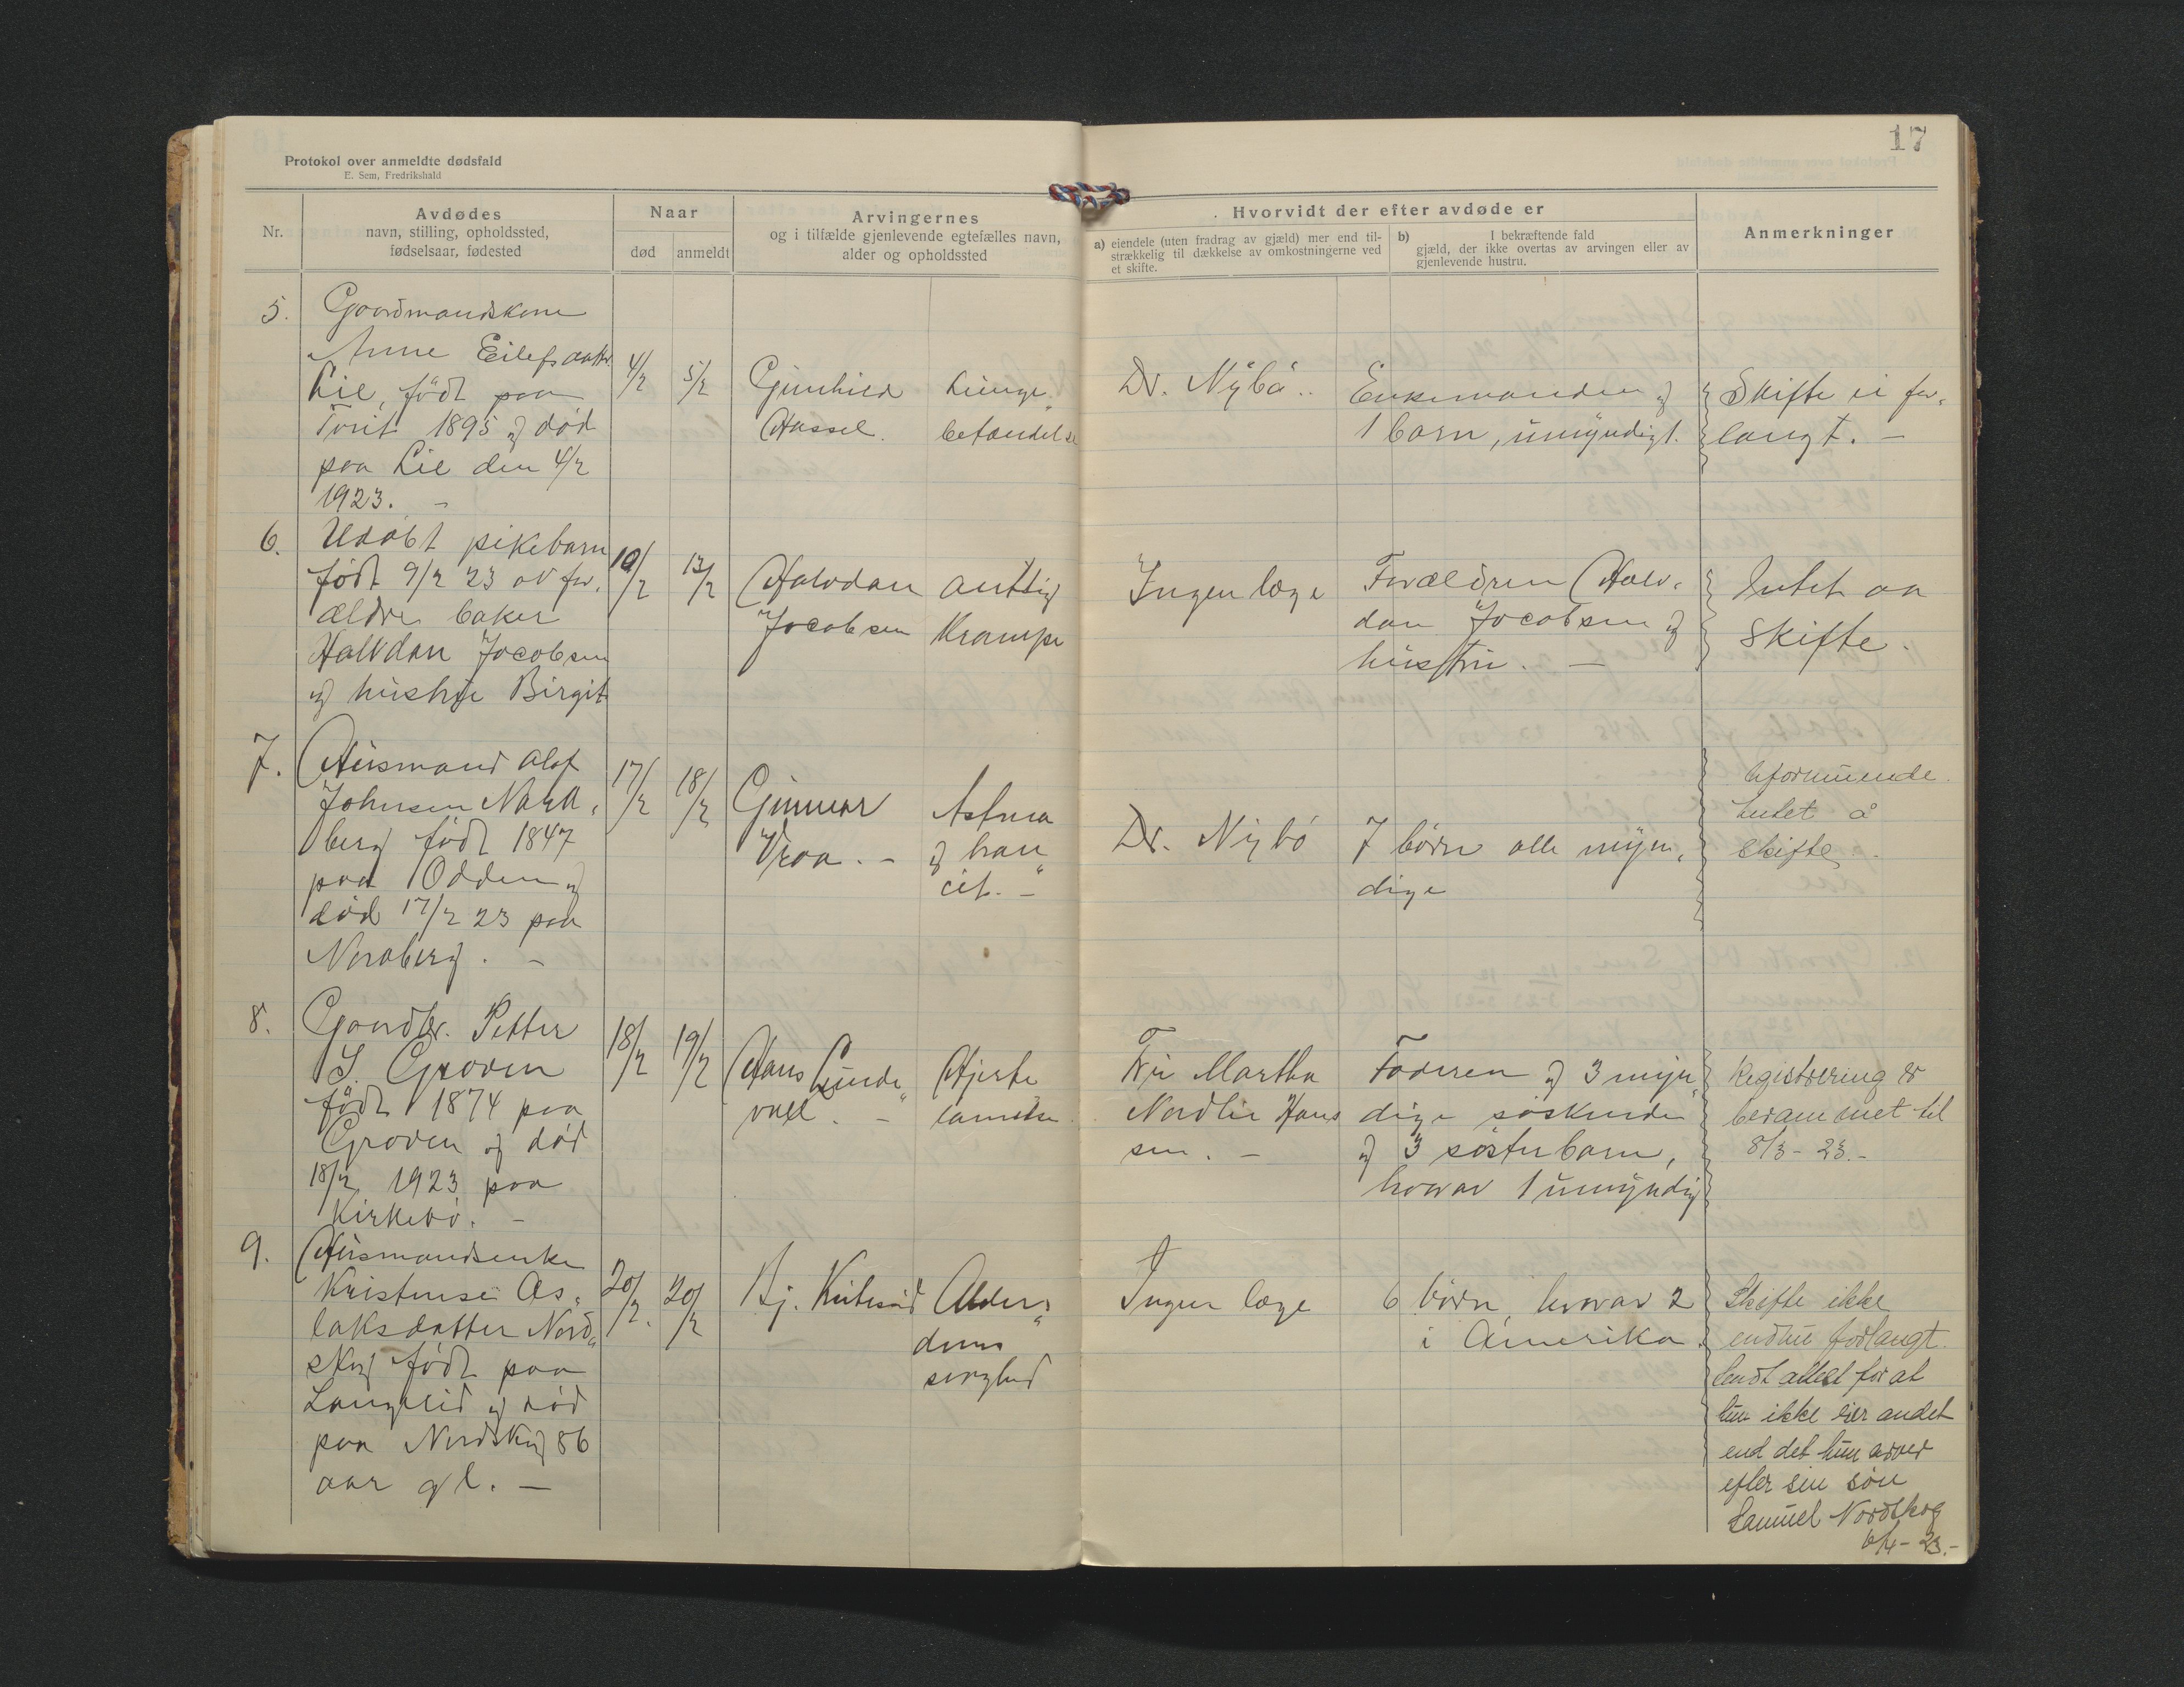 17
Protokol over anmeldte dødsfald
E. Sem, Fredrikshald
Nr.
Avdødes
navn, stilling, opholdssted,
fødselsaar, fødested
Naar
død
anmeldt
Arvingernes
og i tilfælde gjenlevende egtefælles navn,
alder og opholdssted
Hvorvidt der efter avdøde er
a) eiendele (uten fradrag av gjæld) mer end til-
strækkelig til dækkelse av omkostningerne ved
et skifte.
b) I bekræftende fald
gjæld, der ikke overtas av arvingen eller av
gjenlevende hustru.
Anmerkninger
5.
Gaardmandskone
Anne Eilefsdatter
Lie, født paa
1895 og død
paa Lie den 4/2
1923. -
4/2
5/2
Gunhild
Hassel.
Lunge-
betændelse
Dr. Nybö..
Enkemanden og
1 barn, umyndigt.
Skifte ei for-
langt. -
6.
Udöbt pikebarn
född 9/2 23 av for-
ældre baker
Halvdan Jacobsen
og hustru Birgit
10/2
13/2
Halvdan
Jacobsen
Krampe
Ingen læge
Forældren Halv-
dan Jacobsen og
hustru. -
Intet aa
skifte.
7.
Husmand Olaf
Johnsen Nord-
berg födt 1847
paa Odden og
död 17/2 23 paa
Nordberg. -
17/2
18/2
Gunnar
Vraa. -
Astma
og bron-
cit. -
Dr. Nybö
7 børn alle myn-
dige
Uformuende.
Intet å
skifte.
8.
Gaardbr. Petter
S. Groven
født 1874 paa
Groven og död
18/2 1923 paa
Kirkebö. -
18/2
19/2
Hans Lunde-
vall. -
Hjerte
lamelse.
Frü Martha
Nordlie Hans
sen. -
Faderen og 3 myn-
dige söskende
og 3 sösterbarn,
hvorav 1 umyndig
Registrering er
berammet til
8/3 - 23. -
9.
Husmandsenke
Kristense As-
laksdatter Nord-
skog födt paa
Langelid og död
paa Nordskog 86
aar gl. -
20/2.
20/2
Bj. Kultesid
Alder-
doms
svaghed
Ingen læge
6 börn, hvorav 2
i Amerika.
Skifte ikke
endnu forlangt.
Sendt attest for at
hun ikke eier andet
end det hun arver
efter sin sön
Samuel Nordskog
6/4 - 23. -